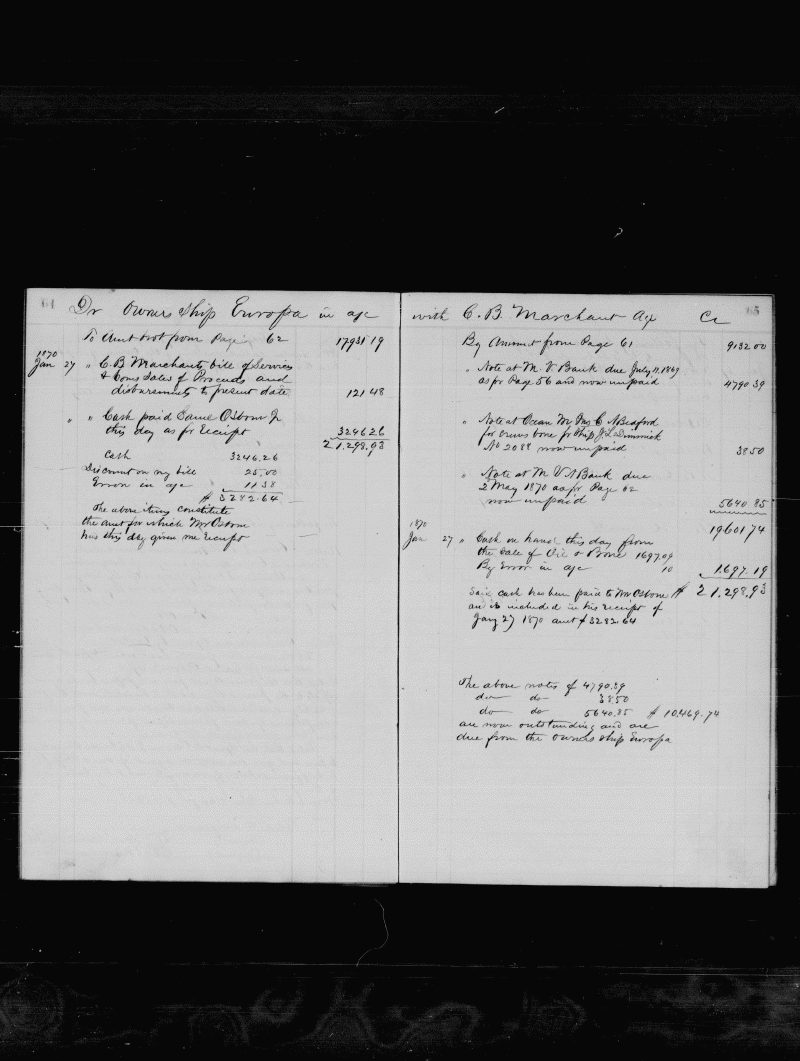 64
Dr Owners Ship Europa in a/c
To Amt brot from Page 62 17931 19
1870
Jan 27 " C. B Marchants bill of Services
& Coms Sales of Proceeds and
disbursements to present date 121 48
" " Cash paid Saml Osborn Jr
this day as pr Receipt 3246 26
21,298.93
Cash 3246.26
Discount on my bill 25,00
Error in a/c 11 38
$ 3282.64
The above items constitute
the amt for which Mr Osborn
has this day given me receipt
65
with C. B. Marchant Agt Cr
By Amount from Page 61 9132 00
" Note at M. V Bank due July 11, 1869
as pr Page 56 and now unpaid 4790 39
" Note at Ocean C N Bedford
for bone pr Ship Dimmick
No 2088 now unpaid 38 50
" Note at M V N Bank due
2 May 1870 as pr Page 62
now unpaid 5640 85
19601 74
1870
Jan 27 " Cash on hand this day from
the Sale of Oil & Bone 1697.09
By Error in a/c 10 1.697.19
Said cash has been paid to Mr Osborn $ 21,298.93
an is included in his receipt of
Jany 27 1870 amt $ 3282.64
The above notes of 4790.39
do do 38.50
do do 5640.85 $ 10,469.74
are now outstanding and are
due from the owners Ship Europa